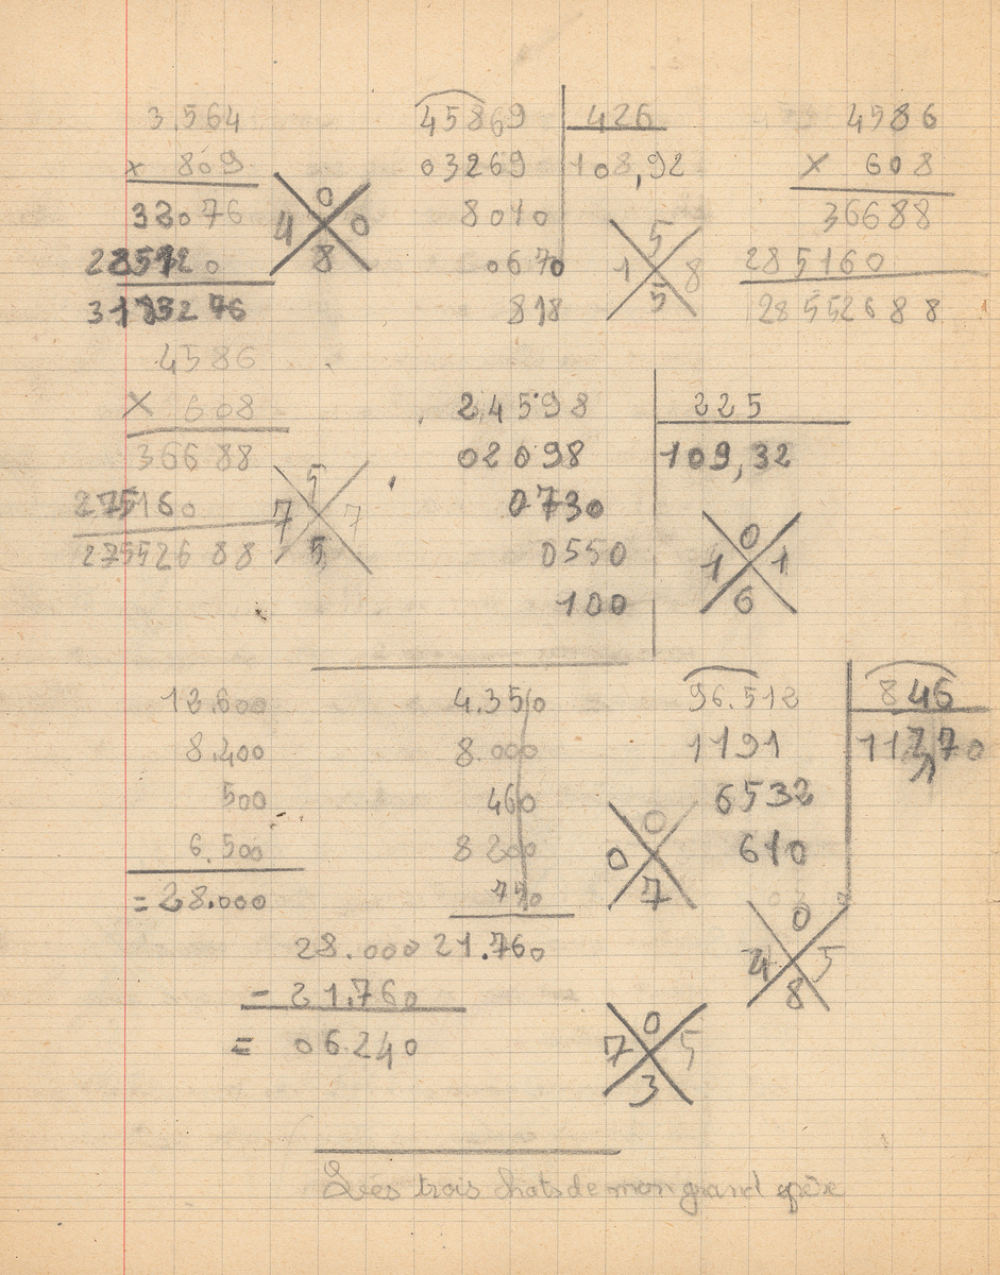 3.564
× 809
32076
28512 0
4 0 0 8
45869 426
03269 108,92
8010
0670
818
5 1 8 5
4586
× 608
36688
285160
28552688
4586
× 608
36688
275160
27552688
5 7 7 5
24598 225
02098 109,32
0730
0550
100
0 1 1 6
13.600
8.400
500
6.500
= 28.000
4.350
8.000
460
8200
750
21.760
28.000
- 21.760
= 06.240
96.512 846
1191
6532
610
0 0 7
0 4 5 8
0 7 5 3
Les trois chats de mon grand père